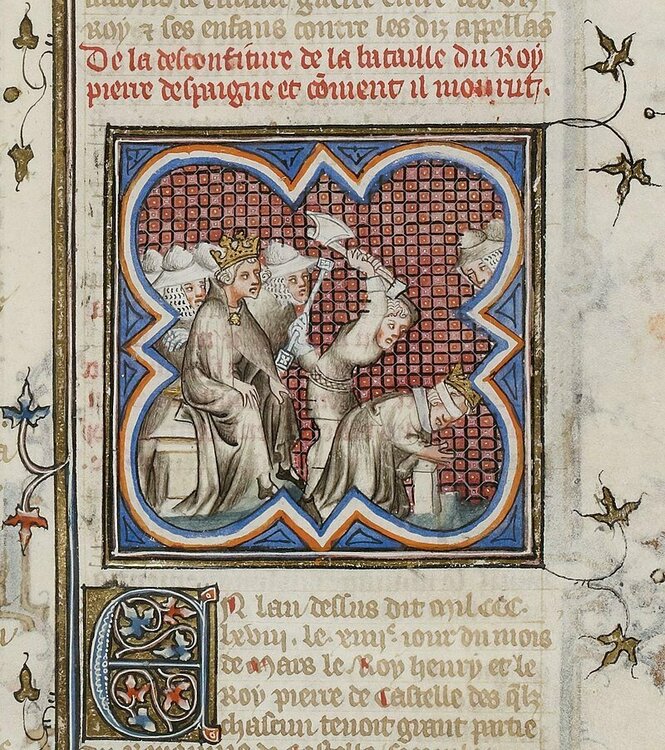 Roy & ses enfans contre les diz appellas
De la desconfiture de la bataille du Roy
pierre despaigne et cōment il mourut.
EN lan dessus dit mil CCC.
lxviii. le xiiiiᵉ iour du mois
de Mars le Roy henry et le
Roy pierre de Castelle des qlz
chascun tenoit grant partie